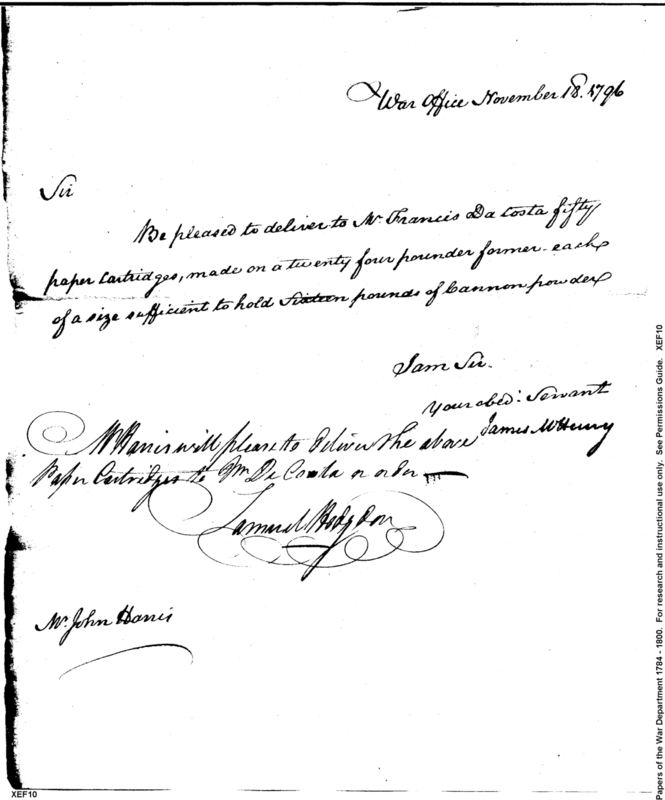 War Office November 18. 1796
Sir
Be pleased to deliver to Mr Francis Da Costa fifty
paper Cartridges, made on a twenty four pounder former - each
of a size sufficient to hold Sixteen pounds of Cannon powder
I am Sir.
Your obed: Servant
James McHenry
Mr Harris will please to deliver the above
Paper Cartridges to Mr De Costa or order
Samuel Hodgdon
Mr John Harris
XEF10
Papers of the War Department 1784 - 1800. For research and instructional use only. See Permissions Guide. XEF10